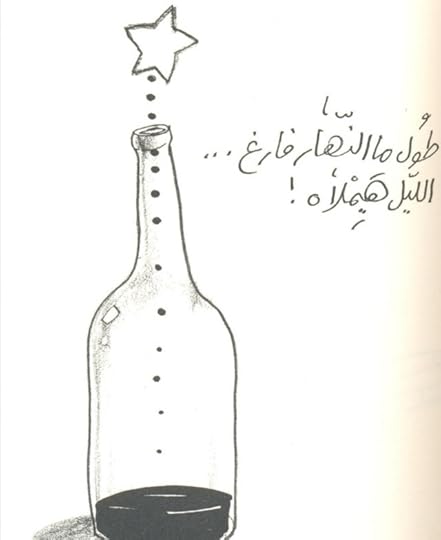 طُول ما النّهَار فارغ ...
الليّل هَيِمْلَأه !